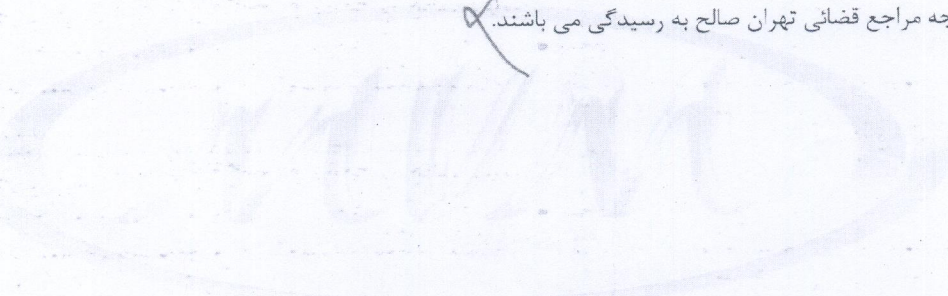 جه مراجع قضائی تهران صالح به رسیدگی می باشند.